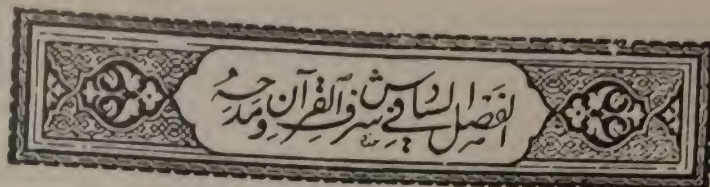 الفصل السادس في شرف القرآن ومدحه